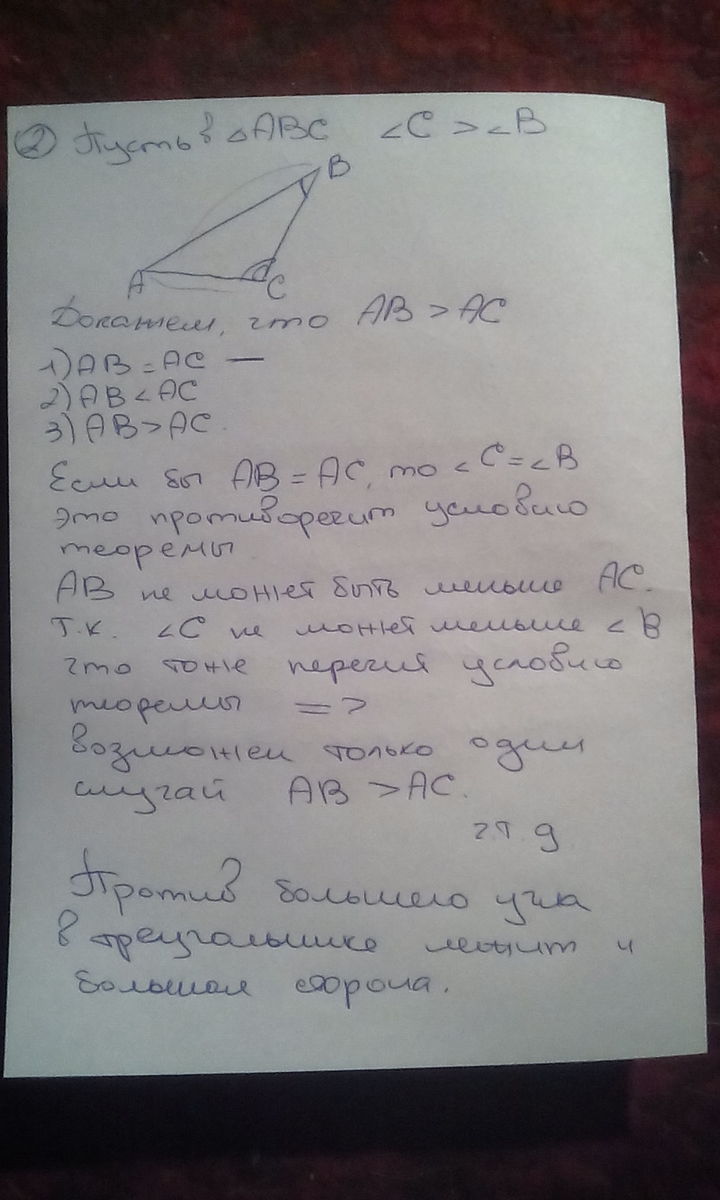 ② Пусть в △ABC ∠C > ∠B
B
A
C
Докажем, что AB > AC
1) AB = AC —
2) AB < AC
3) AB > AC.
Если бы AB = AC, то ∠C = ∠B
Это противоречит условию
теоремы
AB не может быть меньше AC.
т.к. ∠C не может меньше ∠B
что тоже перечит условию
теоремы =>
возможен только один
случай AB > AC.
ч.т.д
Против большего угла
в треугольнике лежит и
большая сторона.